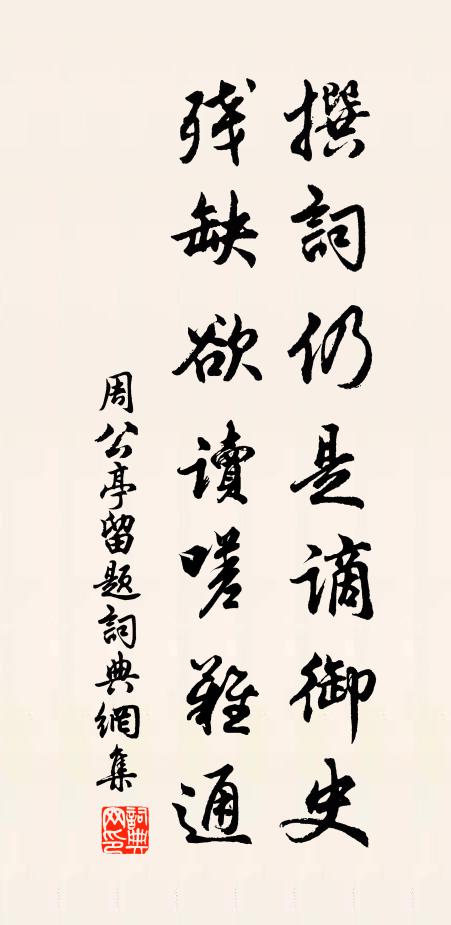 撰詞仍是謫御史
殘缺欲讀嗟難通
周公亭留題詞典網集
詞典網印